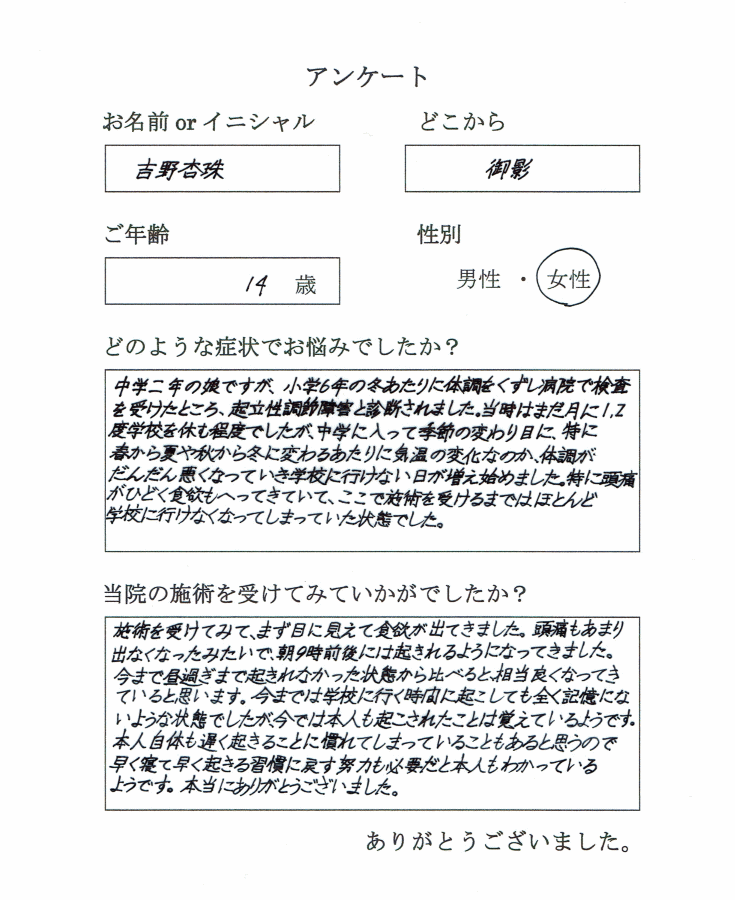 アンケート
お名前 or イニシャル
どこから
吉野杏珠
御影
ご年齢
性別
14 歳
男性 ・ 女性
どのような症状でお悩みでしたか？
中学二年の娘ですが、小学6年の冬あたりに体調をくずし病院で検査
を受けたところ、起立性調節障害と診断されました。当時はまだ月に1,2
度学校を休む程度でしたが、中学に入って季節の変わり目に、特に
春から夏や秋から冬に変わるあたりに気温の変化なのか、体調が
だんだん悪くなっていき学校に行けない日が増え始めました。特に頭痛
がひどく食欲もへってきていて、ここで施術を受けるまではほとんど
学校に行けなくなってしまっていた状態でした。
当院の施術を受けてみていかがでしたか？
施術を受けてみて、まず目に見えて食欲が出てきました。頭痛もあまり
出なくなったみたいで、朝9時前後には起きれるようになってきました。
今まで昼過ぎまで起きれなかった状態から比べると、相当良くなってき
ていると思います。今までは学校に行く時間に起こしても全く記憶にな
いような状態でしたが今では本人も起こされたことは覚えているようです。
本人自体も遅く起きることに慣れてしまっていることもあると思うので
早く寝て早く起きる習慣に戻す努力も必要だと本人もわかっている
ようです。本当にありがとうございました。
ありがとうございました。